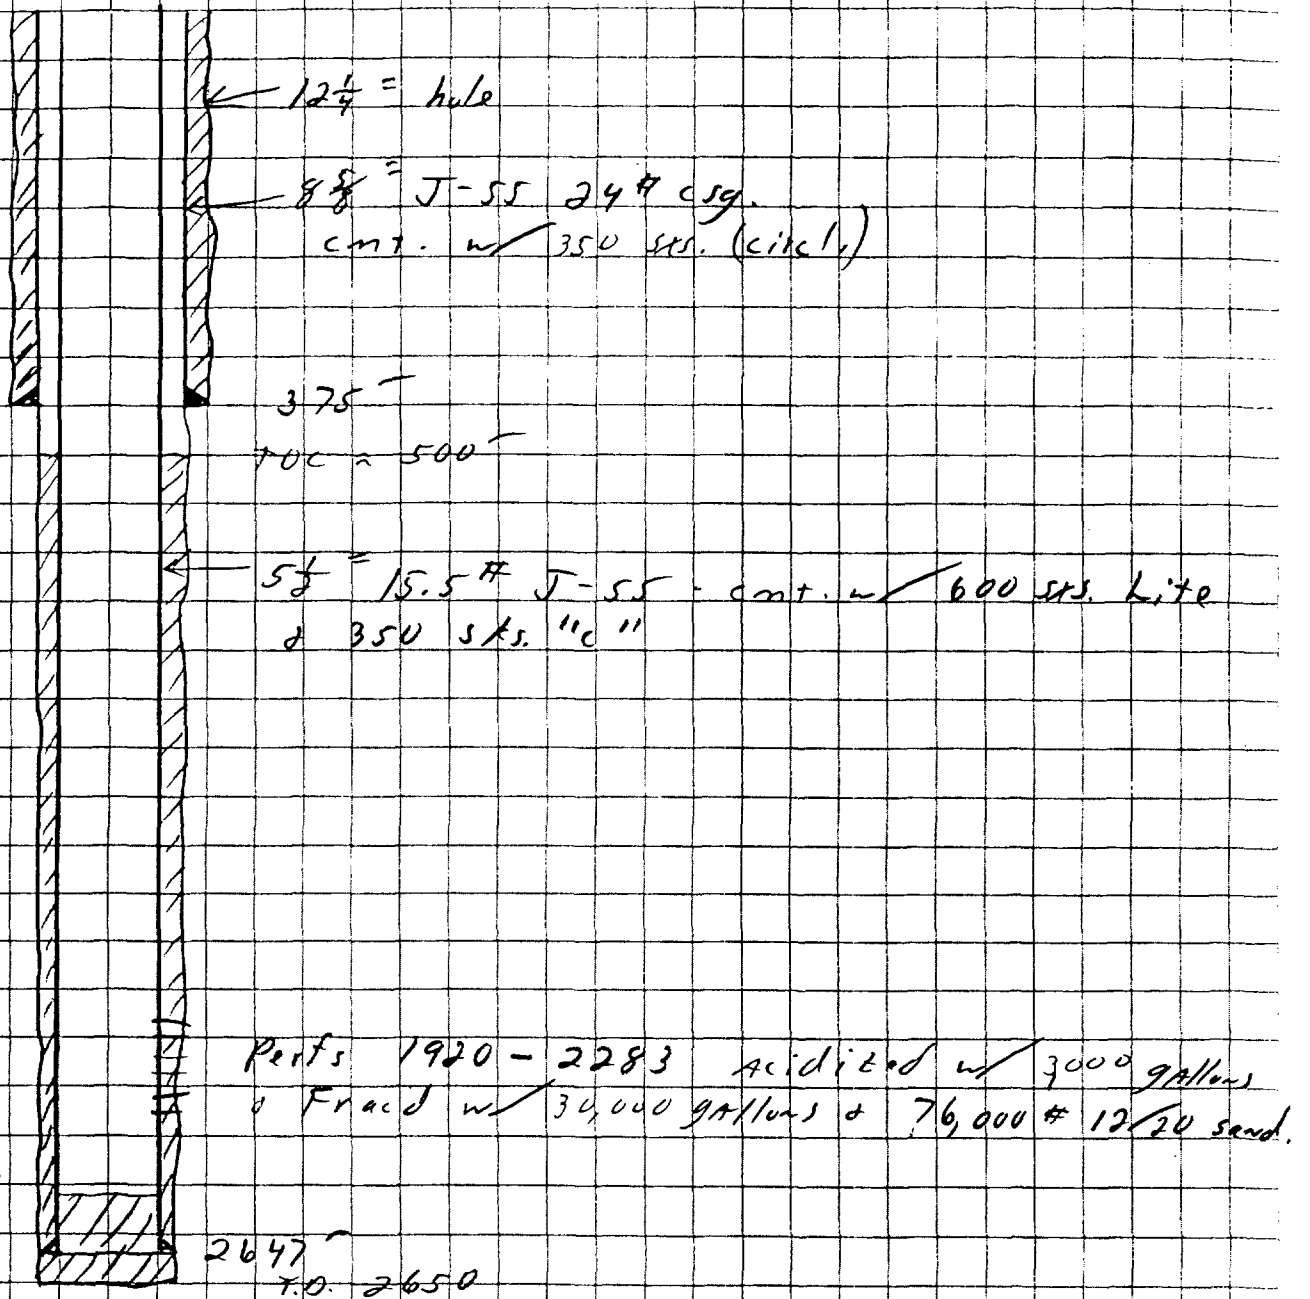 12 1/4" hole
8 5/8" J-55 24# csg.
cmt. w/ 350 sxs. (circ'l.)
375'
TOC ≈ 500'
5 1/2" 15.5# J-55 - cmt. w/ 600 sxs. Lite
& 350 sks. "c"
Perfs 1920 - 2283 Acidized w/ 3,000 gallons
& Frac'd w/ 30,000 gallons & 76,000 # 12/20 sand.
2647'
T.D. 2650